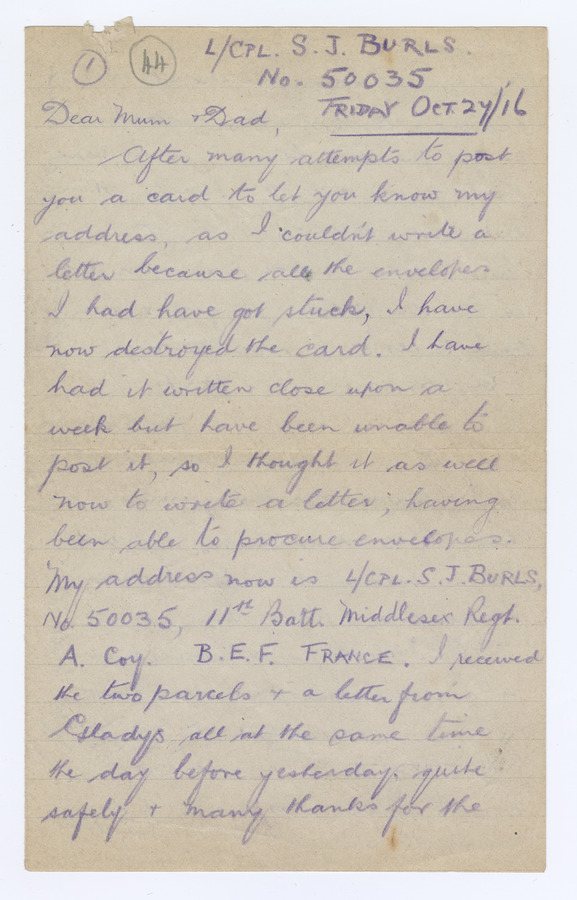 1 44 L/CPL. S. J. BURLS.
No. 50035
Dear Mum + Dad, FRIDAY OCT. 27/16
After many attempts to post
you a card to let you know my
address, as I couldn't write a
letter because all the envelopes
I had have got stuck, I have
now destroyed the card. I have
had it written close upon a
week but have been unable to
post it, so I thought it as well
now to write a letter, having
been able to procure envelopes.
My address now is L/CPL. S. J. BURLS,
No. 50035, 11th Batt. Middlesex Regt.
A. Coy. B.E.F. FRANCE. I received
the two parcels + a letter from
Gladys all at the same time
the day before yesterday, quite
safely + many thanks for the